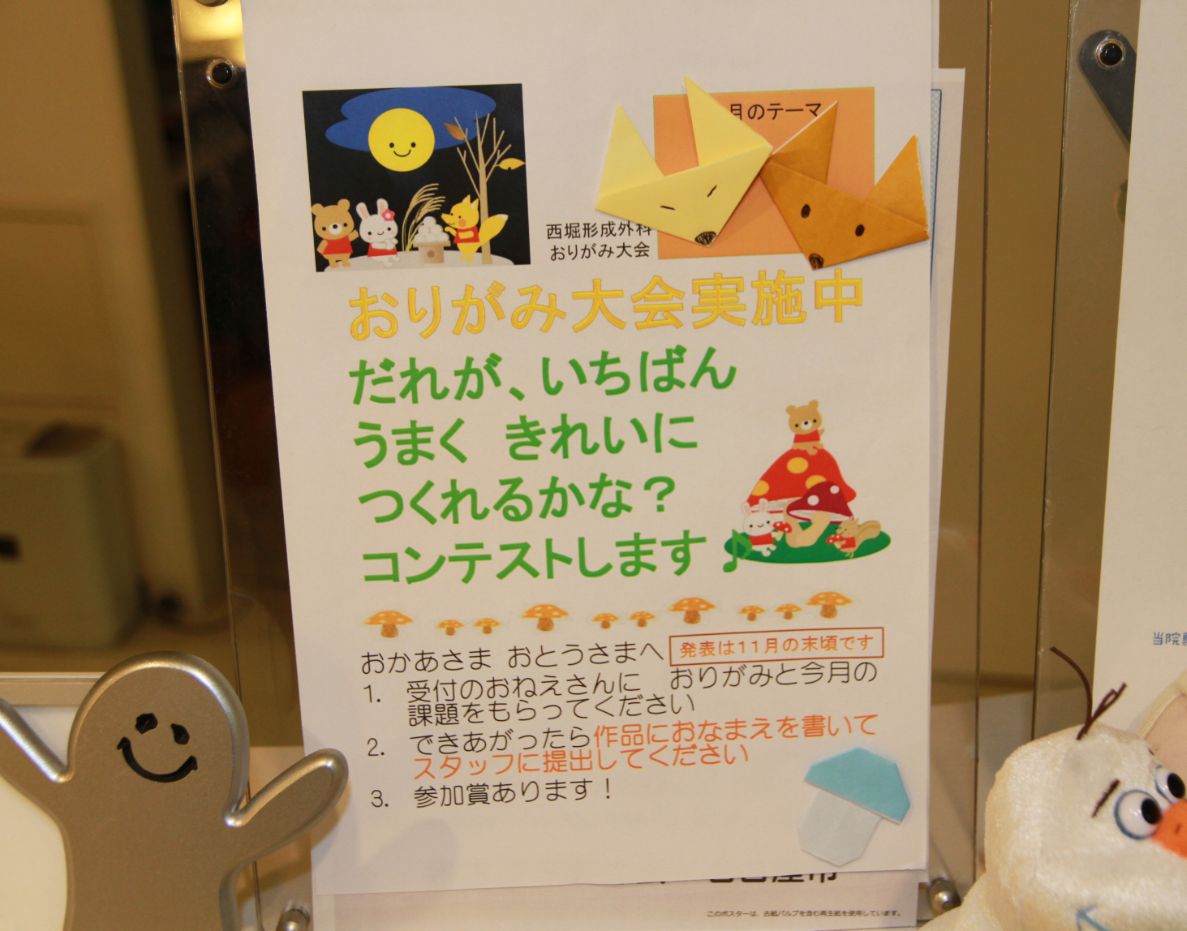 月のテーマ
西堀形成外科
おりがみ大会
おりがみ大会実施中
だれが、いちばん
うまく きれいに
つくれるかな？
コンテストします♪
おかあさま おとうさまへ
発表は11月の末頃です
1. 受付のおねえさんに おりがみと今月の
課題をもらってください
2. できあがったら作品におなまえを書いて
スタッフに提出してください
3. 参加賞あります！
このポスターは、古紙パルプを含む再生紙を使用しています。
当院